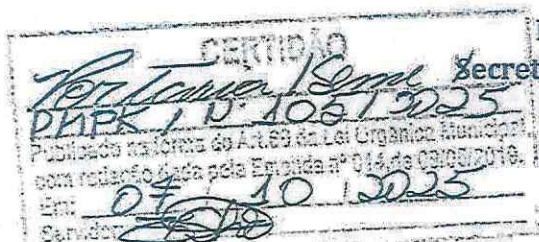 CERTIDÃO
Portaria Secret
PMPK / Nº 105 / 2025
Publicado na forma do Art.69 da Lei Orgânica Municipal,
com redação dada pela Emenda nº 014 de
Em: 07 / 10 / 2025
Servidor